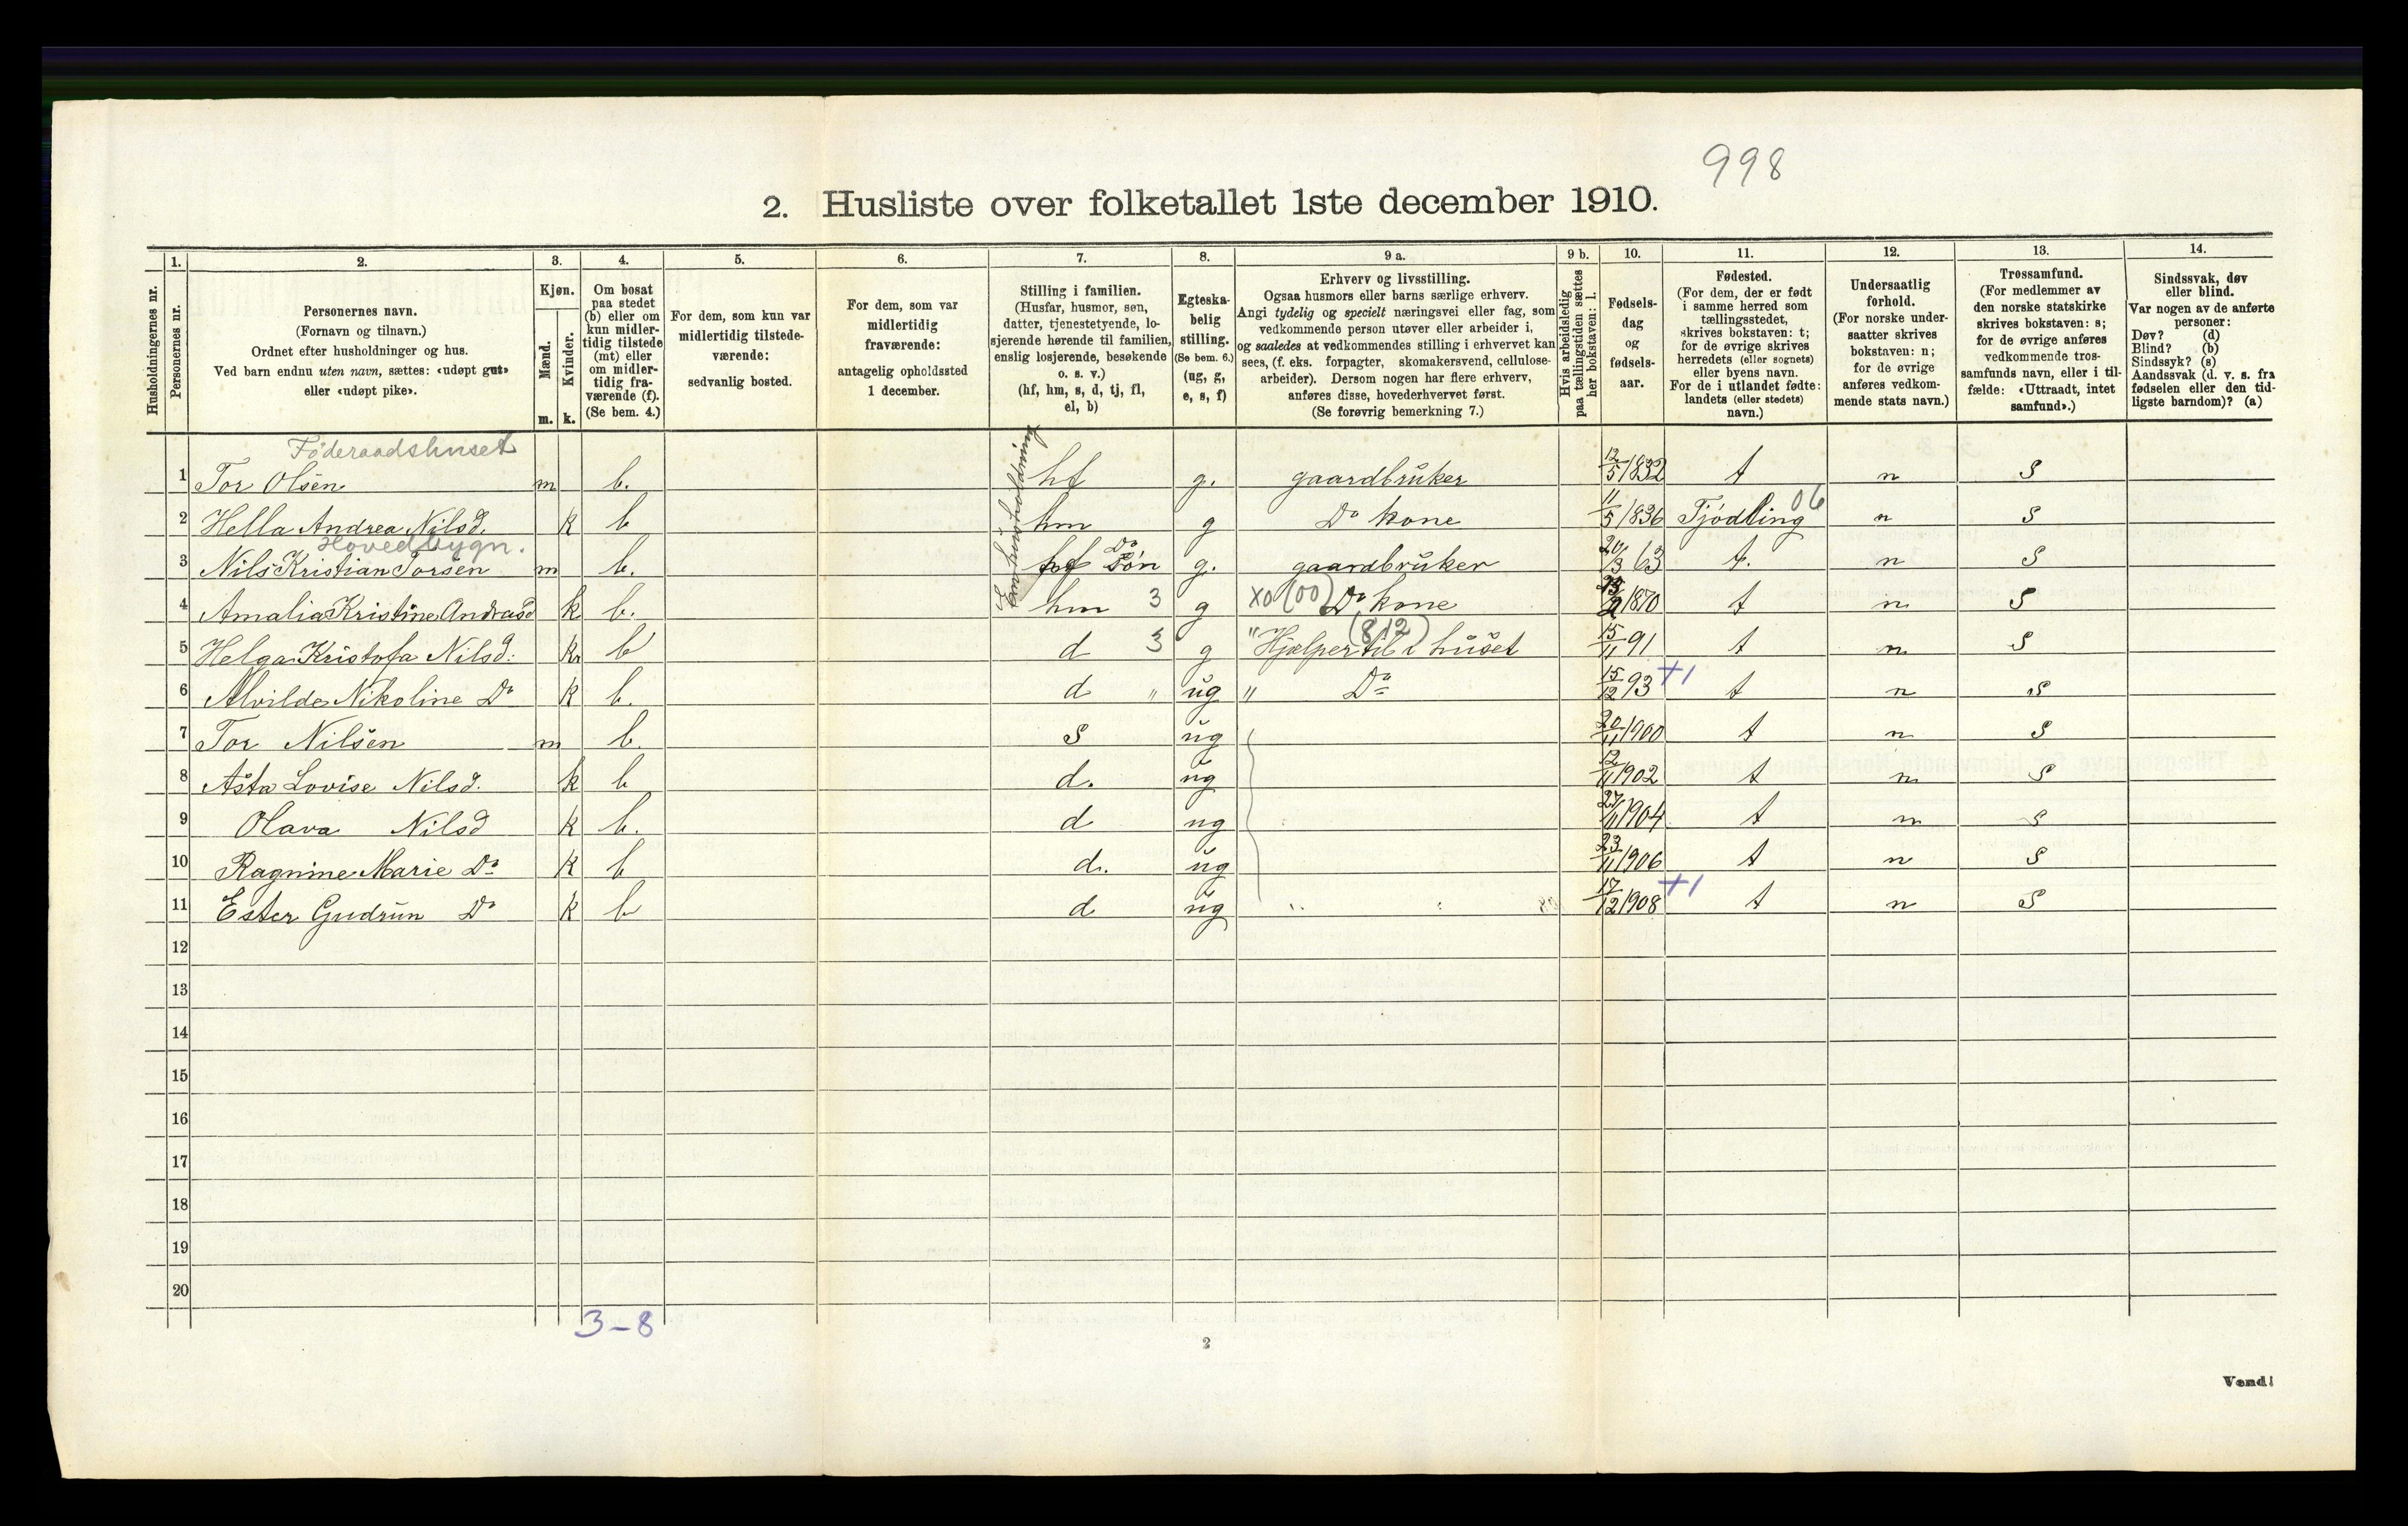 998
2. Husliste over folketallet 1ste december 1910.
Husholdningernes nr.
1. Personernes nr.
2. Personernes navn. (Fornavn og tilnavn.) Ordnet efter husholdninger og hus. Ved barn endnu uten navn, sættes: «udøpt gut» eller «udøpt pike».
3. Kjøn. Mænd. m. Kvinder. k.
4. Om bosat paa stedet (b) eller om kun midlertidig tilstede (mt) eller om midlertidig fraværende (f). (Se bem. 4.)
5. For dem, som kun var midlertidig tilstedeværende: sedvanlig bosted.
6. For dem, som var midlertidig fraværende: antagelig opholdssted 1 december.
7. Stilling i familien. (Husfar, husmor, søn, datter, tjenestetyende, losjerende hørende til familien, enslig losjerende, besøkende o. s. v.) (hf, hm, s, d, tj, fl, el, b)
8. Egteskabelig stilling. (Se bem. 6.) (ug, g, e, s, f)
9 a. Erhverv og livsstilling. Ogsaa husmors eller barns særlige erhverv. Angi tydelig og specielt næringsvei eller fag, som vedkommende person utøver eller arbeider i, og saaledes at vedkommendes stilling i erhvervet kan sees, (f. eks. forpagter, skomakersvend, cellulosearbeider). Dersom nogen har flere erhverv, anføres disse, hovederhvervet først. (Se forøvrig bemerkning 7.)
9 b. Hvis arbeidsledig paa tællingstiden sættes her bokstaven: l.
10. Fødselsdag og fødselsaar.
11. Fødested. (For dem, der er født i samme herred som tællingsstedet, skrives bokstaven: t; for de øvrige skrives herredets (eller sognets) eller byens navn. For de i utlandet fødte: landets (eller stedets) navn.)
12. Undersaatlig forhold. (For norske undersaatter skrives bokstaven: n; for de øvrige anføres vedkommende stats navn.)
13. Trossamfund. (For medlemmer av den norske statskirke skrives bokstaven: s; for de øvrige anføres vedkommende trossamfunds navn, eller i tilfælde: «Uttraadt, intet samfund».)
14. Sindssvak, døv eller blind. Var nogen av de anførte personer: Døv? (d) Blind? (b) Sindssyk? (s) Aandssvak (d. v. s. fra fødselen eller den tidligste barndom)? (a)
Føderaadshuset
1 Tor Olsen m b. hf g. gaardbruker 12/5 1832 t n s
2 Hella Andrea Nilsd. k b hm g Do kone 11/5 1836 Tjödling 06 n s
Hovedbygn.
3 Nils Kristian Torsen m b. Do Søn g. gaardbruker 20/3 63 t. n s
4 Amalia Kristine Andrasd k b. hm 3 g XO (00) Do kone 1870 t n s
5 Helga Kristofa Nilsd. k b d 3 g " Hjælper til i huset (812) 15/11 91 t n s
6 Alvilde Nikoline Do k b. d " ug " Do 15/12 93 +1 t n s
7 Tor Nilsen m b. s ug 20/11 1900 t n s
8 Asta Lovise Nilsd. k b d. ug 12/11 1902 t n s
9 Olava Nilsd k b. d ug 27/11 1904 t n s
10 Ragnine Marie Do k b d. ug 23/11 1906 t n s
11 Ester Gudrun Do k b d ug 17/12 1908 +1 t n s
12
13
14
15
16
17
18
19
20
3-8
2
Vend!